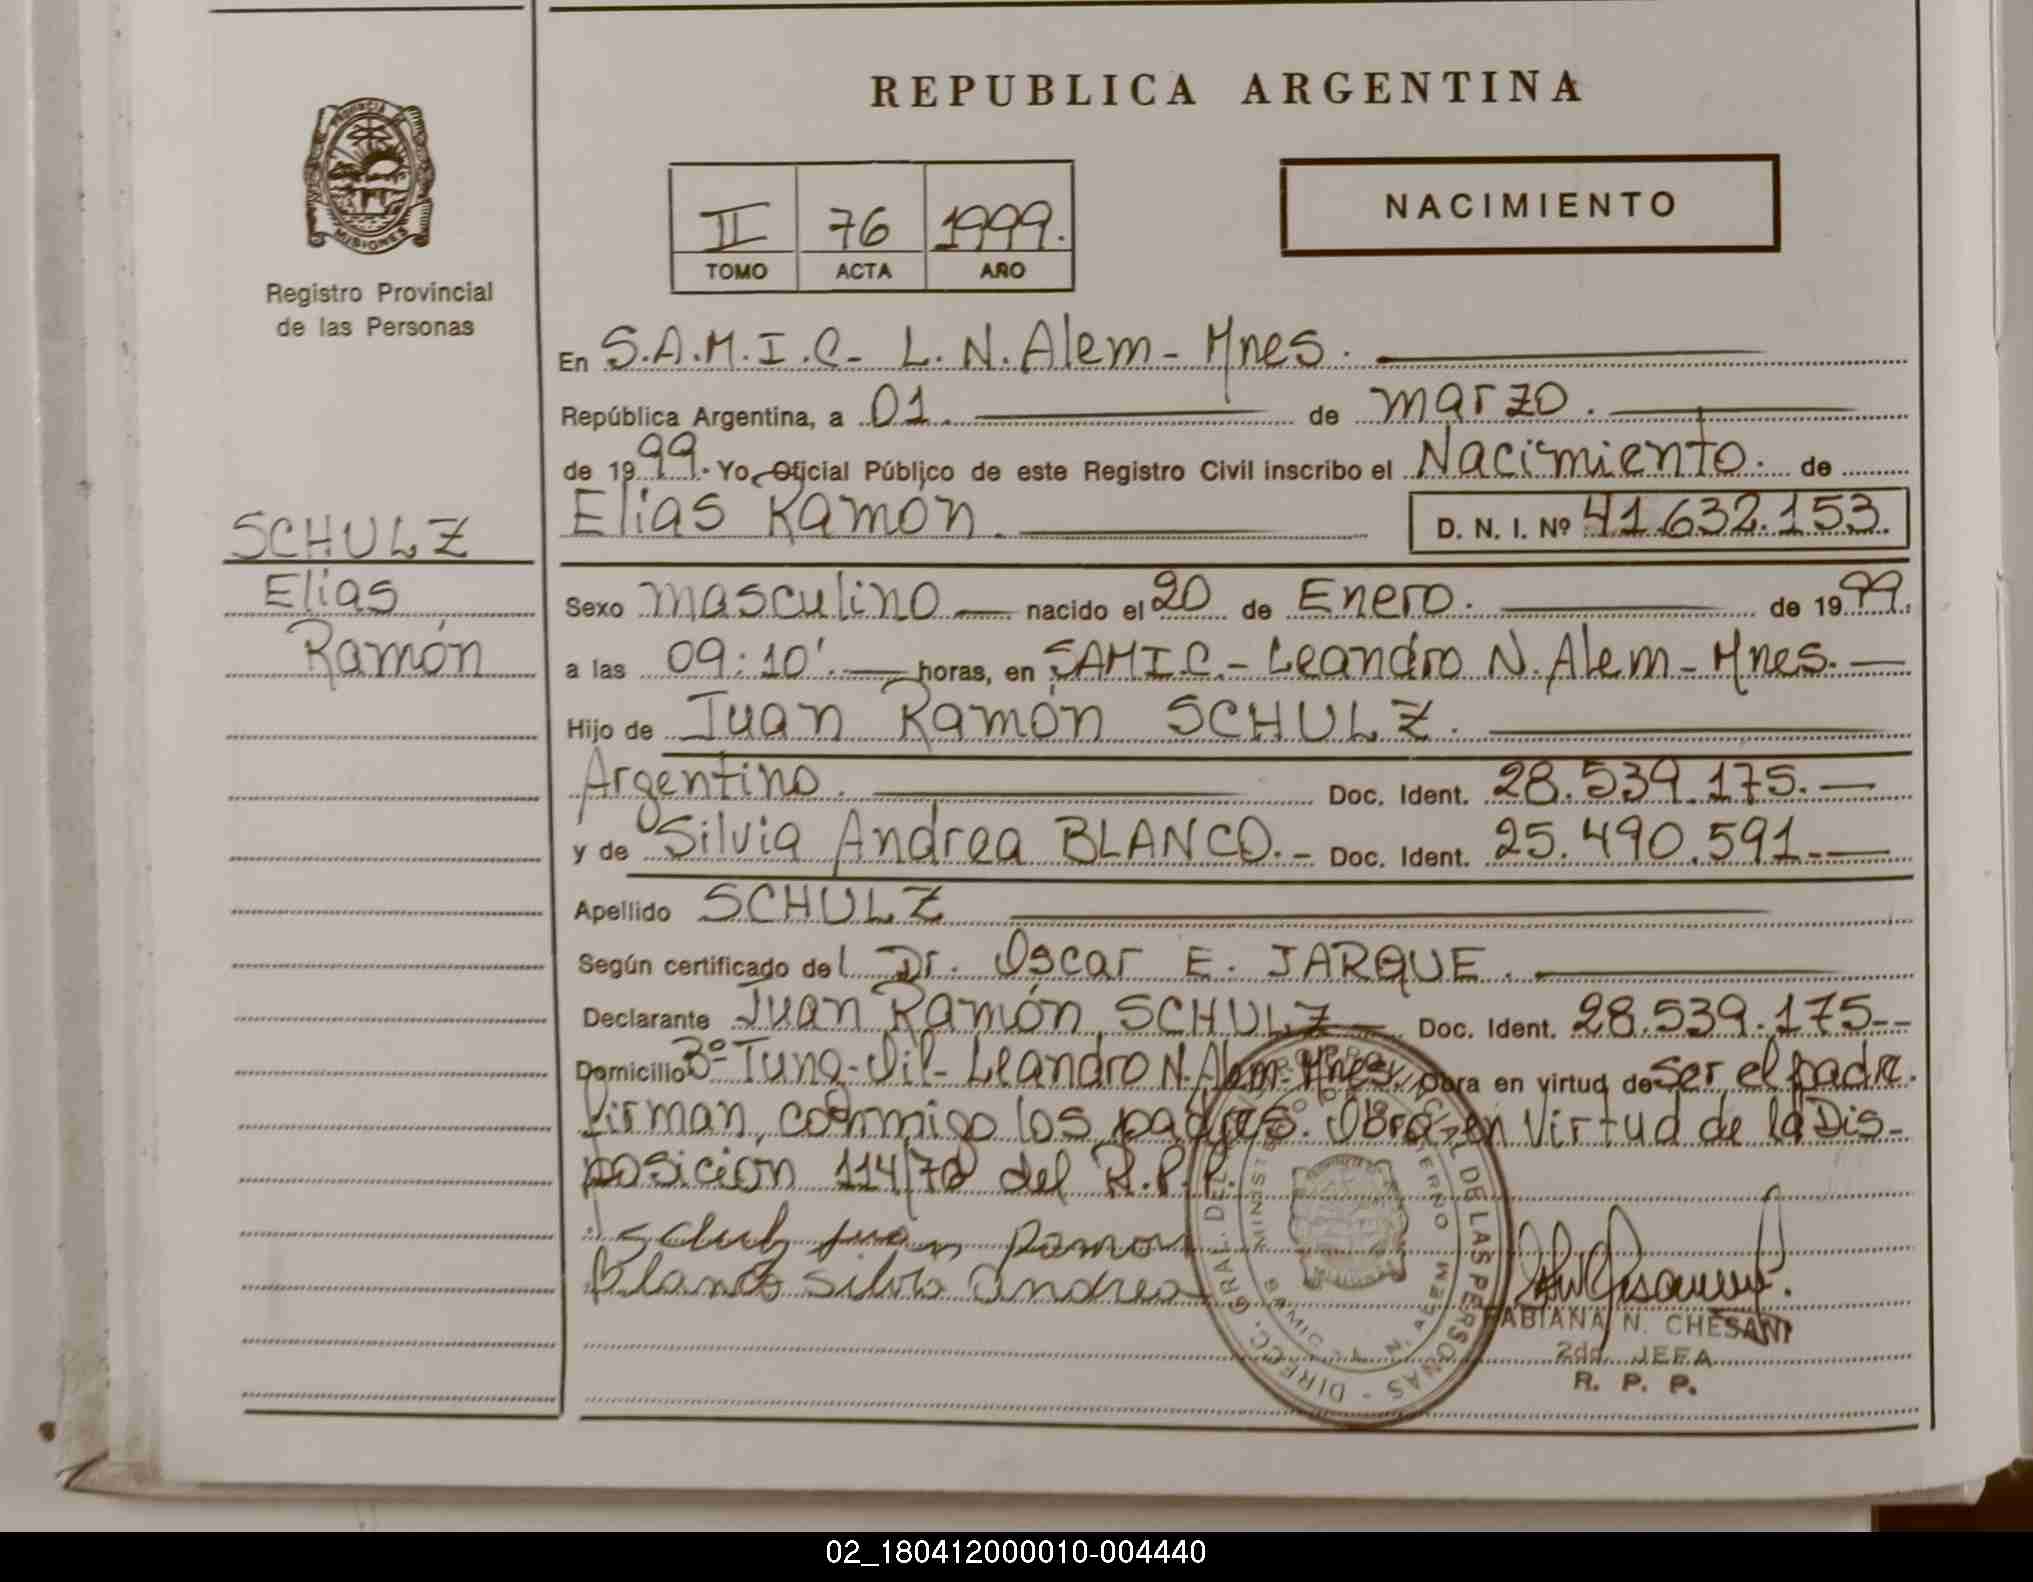 REPUBLICA ARGENTINA
PROVINCIA DE
MISIONES
Registro Provincial
de las Personas
NACIMIENTO
II 76 1999.
TOMO ACTA AÑO
En S.A.M.I.C- L.N.Alem-Mnes.
República Argentina, a 01. de marzo.
de 1999. Yo, Oficial Público de este Registro Civil inscribo el Nacimiento. de
Elias Ramón. D. N. I. Nº 41.632.153.
SCHULZ
Elias
Ramón
Sexo masculino nacido el 20 de Enero. de 1999.
a las 09:10'. horas, en SAMIC.- Leandro N. Alem-Mnes.
Hijo de Juan Ramón SCHULZ.
Argentino. Doc. Ident. 28.539.175.
y de Silvia Andrea BLANCO.- Doc. Ident. 25.490.591.-
Apellido SCHULZ
Según certificado del Dr. Oscar E. JARQUE.
Declarante Juan Ramón SCHULZ Doc. Ident. 28.539.175--
Domicilio 3º Tuna-Vil- Leandro N. Alem-Mnes. Obra en virtud de ser el padre.
firman, conmigo los padres. Obra en Virtud de la Dis-
posición 114/70 del R.P.P.
Schulz Juan Ramon
Blanco Silvia Andrea
DIRECC. GRAL. DEL DE LAS PERSONAS
FABIANA N. CHESANI
2da. JEFA
R. P. P.
02_180412000010-004440